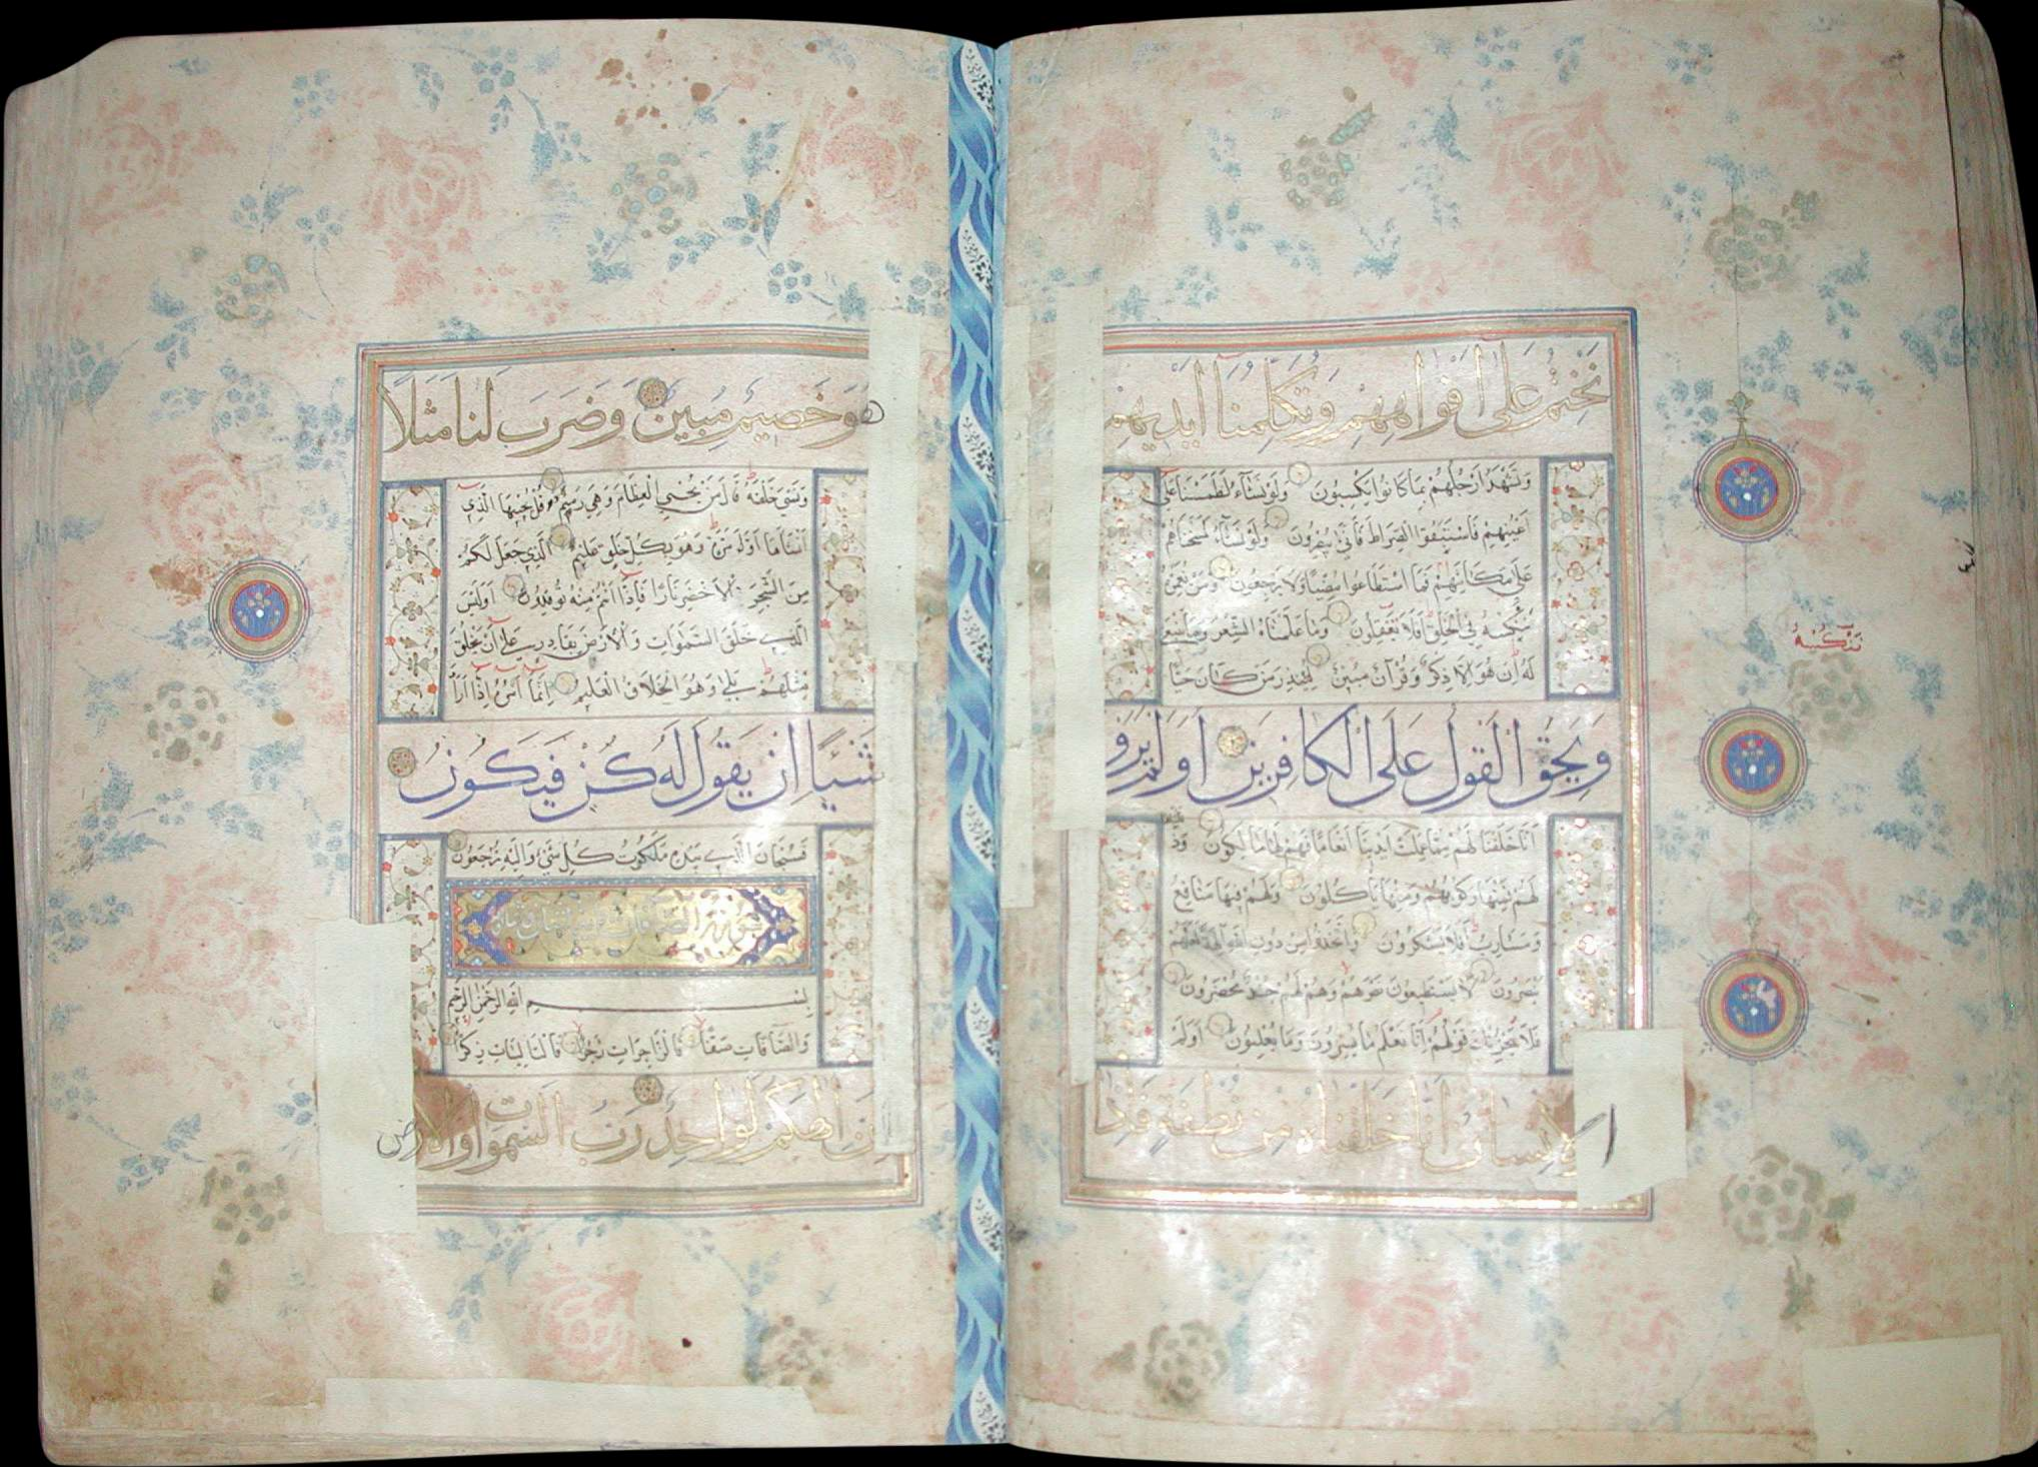 نَخْتِمُ عَلَىٰ اَفْوَاهِهِمْ وَتُكَلِّمُنَا اَيْدِيهِمْ
وَتَشْهَدُ اَرْجُلُهُمْ بِمَا كَانُوا يَكْسِبُونَ وَلَوْ نَشَآءُ لَطَمَسْنَا عَلَىٰ
اَعْيُنِهِمْ فَاسْتَبَقُوا الصِّرَاطَ فَأَنَّىٰ يُبْصِرُونَ وَلَوْ نَشَآءُ لَمَسَخْنَاهُمْ
عَلَىٰ مَكَانَتِهِمْ فَمَا اسْتَطَاعُوا مُضِيًّا وَلَا يَرْجِعُونَ وَمَنْ نُعَمِّرْهُ
نُنَكِّسْهُ فِي الْخَلْقِ اَفَلَا يَعْقِلُونَ وَمَا عَلَّمْنَاهُ الشِّعْرَ وَمَا يَنْبَغِي
لَهُ اِنْ هُوَ اِلَّا ذِكْرٌ وَقُرْآنٌ مُبِينٌ لِيُنْذِرَ مَنْ كَانَ حَيًّا
وَيَحِقَّ الْقَوْلُ عَلَى الْكَافِرِينَ اَوَلَمْ يَرَوْا
اَنَّا خَلَقْنَا لَهُمْ مِمَّا عَمِلَتْ اَيْدِينَا اَنْعَامًا فَهُمْ لَهَا مَالِكُونَ وَذَ
لَهُمْ فَمِنْهَا رَكُوبُهُمْ وَمِنْهَا يَأْكُلُونَ وَلَهُمْ فِيهَا مَنَافِعُ
وَمَشَارِبُ اَفَلَا يَشْكُرُونَ وَاتَّخَذُوا مِنْ دُونِ اللّٰهِ اٰلِهَةً لَعَلَّهُمْ
يُنْصَرُونَ لَا يَسْتَطِيعُونَ نَصْرَهُمْ وَهُمْ لَهُمْ جُنْدٌ مُحْضَرُونَ
فَلَا يَحْزُنْكَ قَوْلُهُمْ اِنَّا نَعْلَمُ مَا يُسِرُّونَ وَمَا يُعْلِنُونَ اَوَلَمْ
الْاِنْسَانُ اَنَّا خَلَقْنَاهُ مِنْ نُطْفَةٍ فَاِذَا
هُوَ خَصِيمٌ مُبِينٌ وَضَرَبَ لَنَا مَثَلًا
وَنَسِيَ خَلْقَهُ قَالَ مَنْ يُحْيِي الْعِظَامَ وَهِيَ رَمِيمٌ قُلْ يُحْيِيهَا الَّذِي
اَنْشَاَهَا اَوَّلَ مَرَّةٍ وَهُوَ بِكُلِّ خَلْقٍ عَلِيمٌ الَّذِي جَعَلَ لَكُمْ
مِنَ الشَّجَرِ الْاَخْضَرِ نَارًا فَاِذَا اَنْتُمْ مِنْهُ تُوقِدُونَ اَوَلَيْسَ
الَّذِي خَلَقَ السَّمٰوَاتِ وَالْاَرْضَ بِقَادِرٍ عَلَىٰ اَنْ يَخْلُقَ
مِثْلَهُمْ بَلَىٰ وَهُوَ الْخَلَّاقُ الْعَلِيمُ اِنَّمَا اَمْرُهُ اِذَا اَرَادَ
شَيْئًا اَنْ يَقُولَ لَهُ كُنْ فَيَكُونُ
فَسُبْحَانَ الَّذِي بِيَدِهِ مَلَكُوتُ كُلِّ شَيْءٍ وَاِلَيْهِ تُرْجَعُونَ
بِسْمِ اللّٰهِ الرَّحْمٰنِ الرَّحِيمِ
وَالصَّآفَّاتِ صَفًّا فَالزَّاجِرَاتِ زَجْرًا فَالتَّالِيَاتِ ذِكْرًا
اِنَّ اِلٰهَكُمْ لَوَاحِدٌ رَبُّ السَّمٰوَاتِ وَالْاَرْضِ